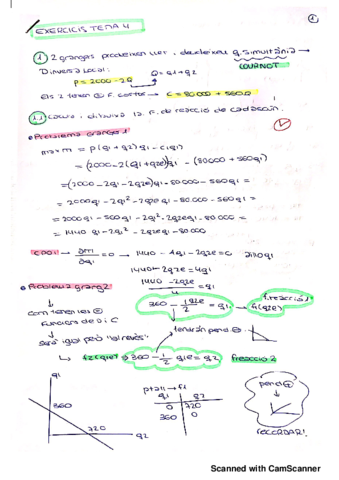 ①
EXERCICIS TEMA 4
① 2 granges produeixen llet i decideixen q simultània →
COURNOT
D inversa local: Q = q1 + q2
P = 2000 - 2Q
Els 2 tenen = F. costos → C = 80000 + 560q
1.1 Calcula i dibuixa la F. de reacció de cadascún.
• Problema granja 1
max π = p(q1+q2)q1 - c(q1)
= (2000 - 2(q1 + q2e))q1 - (80000 + 560q1)
= (2000 - 2q1 - 2q2e)q1 - 80000 - 560q1 =
= 2000q1 - 2q1² - 2q2e q1 - 80.000 - 560q1 =
= 2000q1 - 560q1 - 2q1² - 2q2e q1 - 80.000 =
= 1440 q1 - 2q1² - 2q2e q1 - 80.000
CPO: ∂π/∂q1 = 0 → 1440 - 4q1 - 2q2e = 0
1440 - 2q2e = 4q1
• Problema granja 2
1440 - 2q2e / 4 = q1
360 - 1/2 q2e = q1
f. reacció 1
f1(q2e)
com tenen les =
funcions de D i C
tendràn pend ⊖
serà igual però "al revés"
f2(q1e) → 360 - 1/2 q1e = q2 f reacció 2
q1
360
720
q2
ptall → f1
q1 q2
0 720
360 0
pend ⊕
RECORDAR!
Scanned with CamScanner